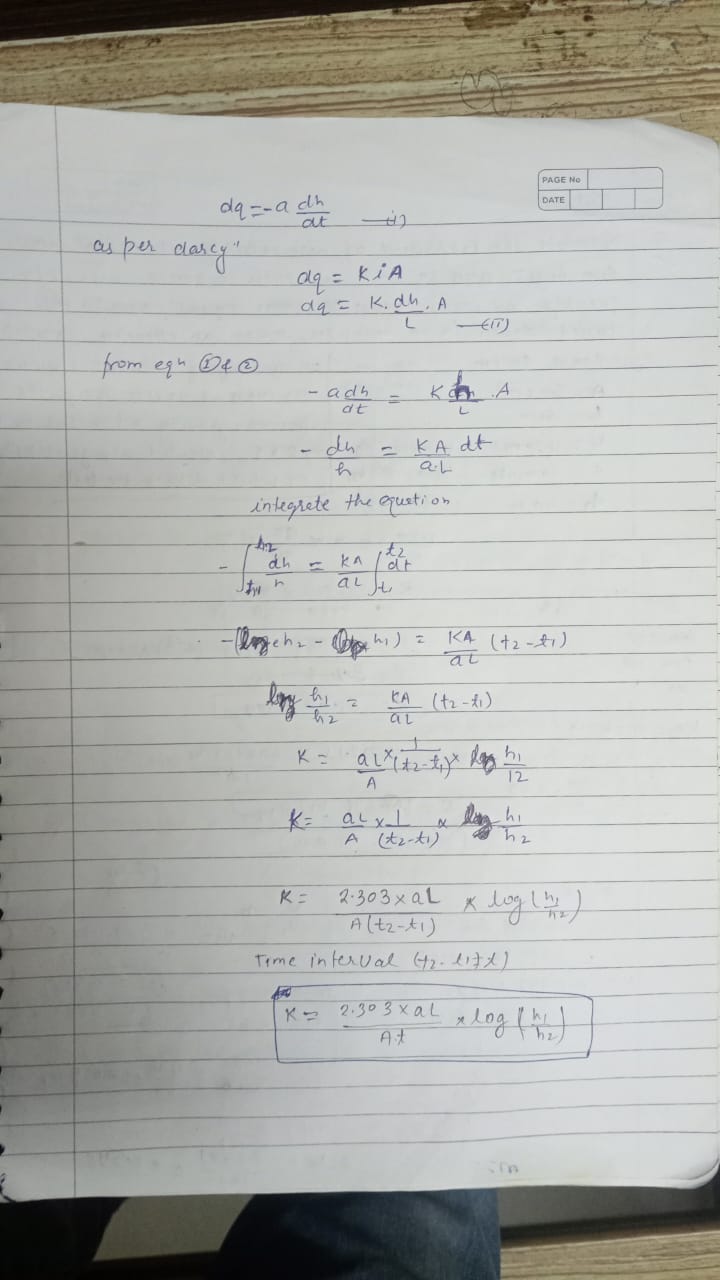 PAGE No
DATE
dq = -a dh/dt —(i)
as per darcy"
dq = KiA
dq = K. dh/L . A —(II)
from eqn ① & ②
- a dh/dt = K h/L . A
- dh/h = KA/a.L dt
integrete the equetion
- ∫h1^h2 dh/h = KA/aL ∫t1^t2 dt
-(loge h2 - h1) = KA/aL (t2-t1)
log h1/h2 = KA/aL (t2-t1)
K = aL/A × 1/(t2-t1) × log h1/12
K = aL/A × 1/(t2-t1) × log h1/h2
K = 2.303×aL/A(t2-t1) × log (h1/h2)
Time interval (t2-t1=t)
K = 2.303×aL/A.t × log (h1/h2)